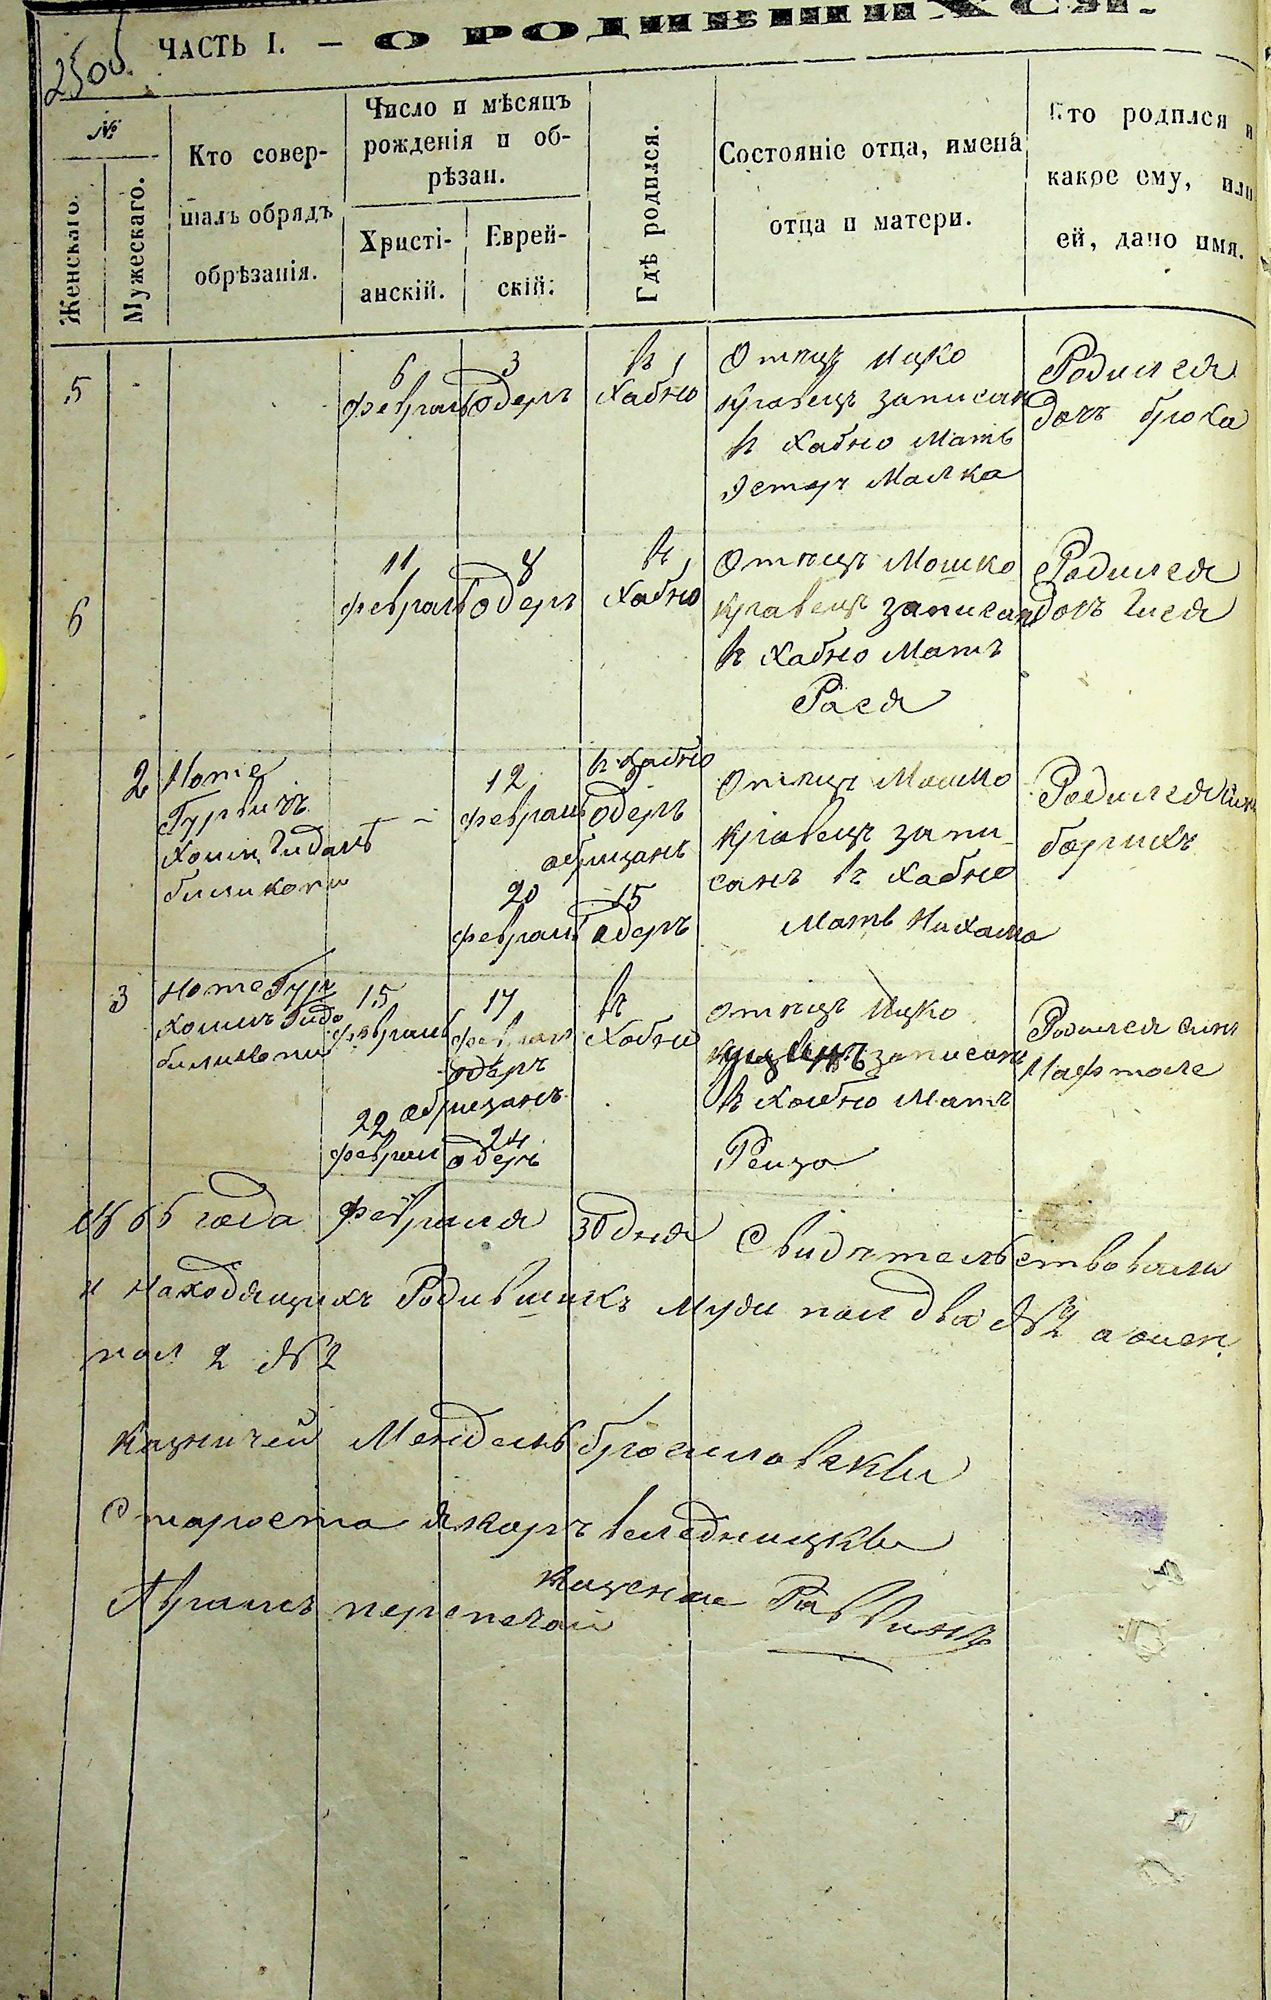 250об
ЧАСТЬ I. — О РОДИВШИХСЯ.
№
Женскаго.
Мужескаго.
Кто совер-
шалъ обрядъ
обрѣзанія.
Число и мѣсяцъ
рожденія и об-
рѣзан.
Христі-
анскій.
Еврей-
скій.
Гдѣ родился.
Состояніе отца, имена
отца и матери.
Кто родился и
какое ему, или
ей, дано имя.
5
6
февраль
3
одеръ
в
Хабно
Отецъ Ицко
Кравецъ записан
в Хабно Мать
Эстер Малка
Родился
дочъ броха
6
11
февраль
8
одеръ
в
Хабно
Отецъ Мошко
Кравецъ записан
в Хабно Матъ
Рася
Родился
дочъ
2
Ноте
Гурвичъ
12
февраль
в Хабно
одеръ
обризанъ
20
февраль
15
одеръ
Отецъ Мошко
Кравецъ запи
санъ в Хабно
Мать Нихама
Родился синъ
борихъ
3
Ноте Гур
15
февраль
17
феврал
одеръ
обризанъ
22
феврал
24
одеръ
в
Хабно
Отецъ Ицко
записанъ
в Хабно Матъ
Рейза
Родился синъ
Нафтоле
1865 года февраля 30 дня Свидетельствовали
и находящихъ Родившихъ Муж пол два №2 а жен.
пол 2 №2
Казничей Мендель брогиловски
Староста Якоръ веледницки
Аврамъ перепечай
Казеные Раввинъ